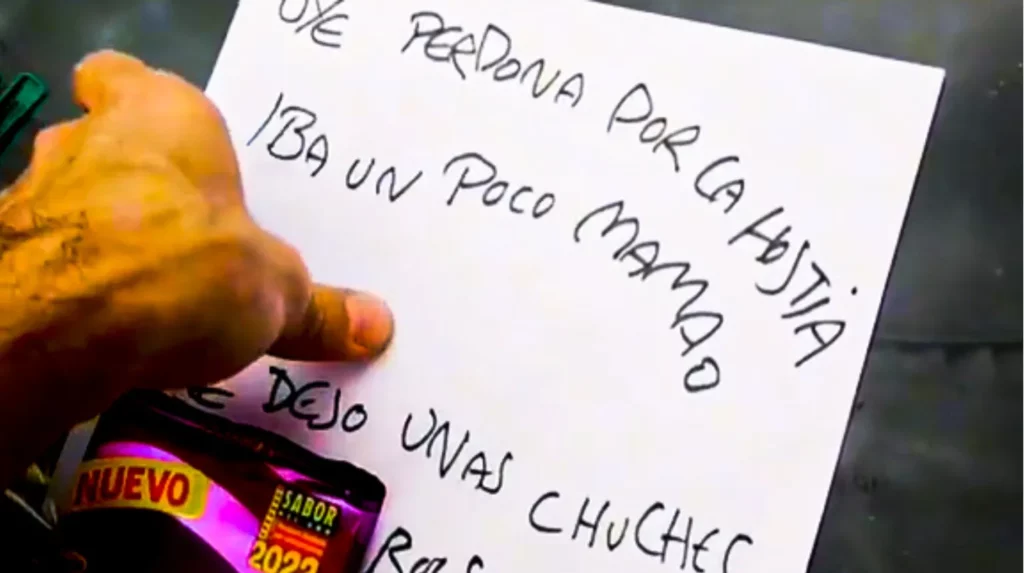 OYE PERDONA POR LA HOSTIA
IBA UN POCO MAMAO
TE DEJO UNAS CHUCHES
NUEVO
SABOR
2022